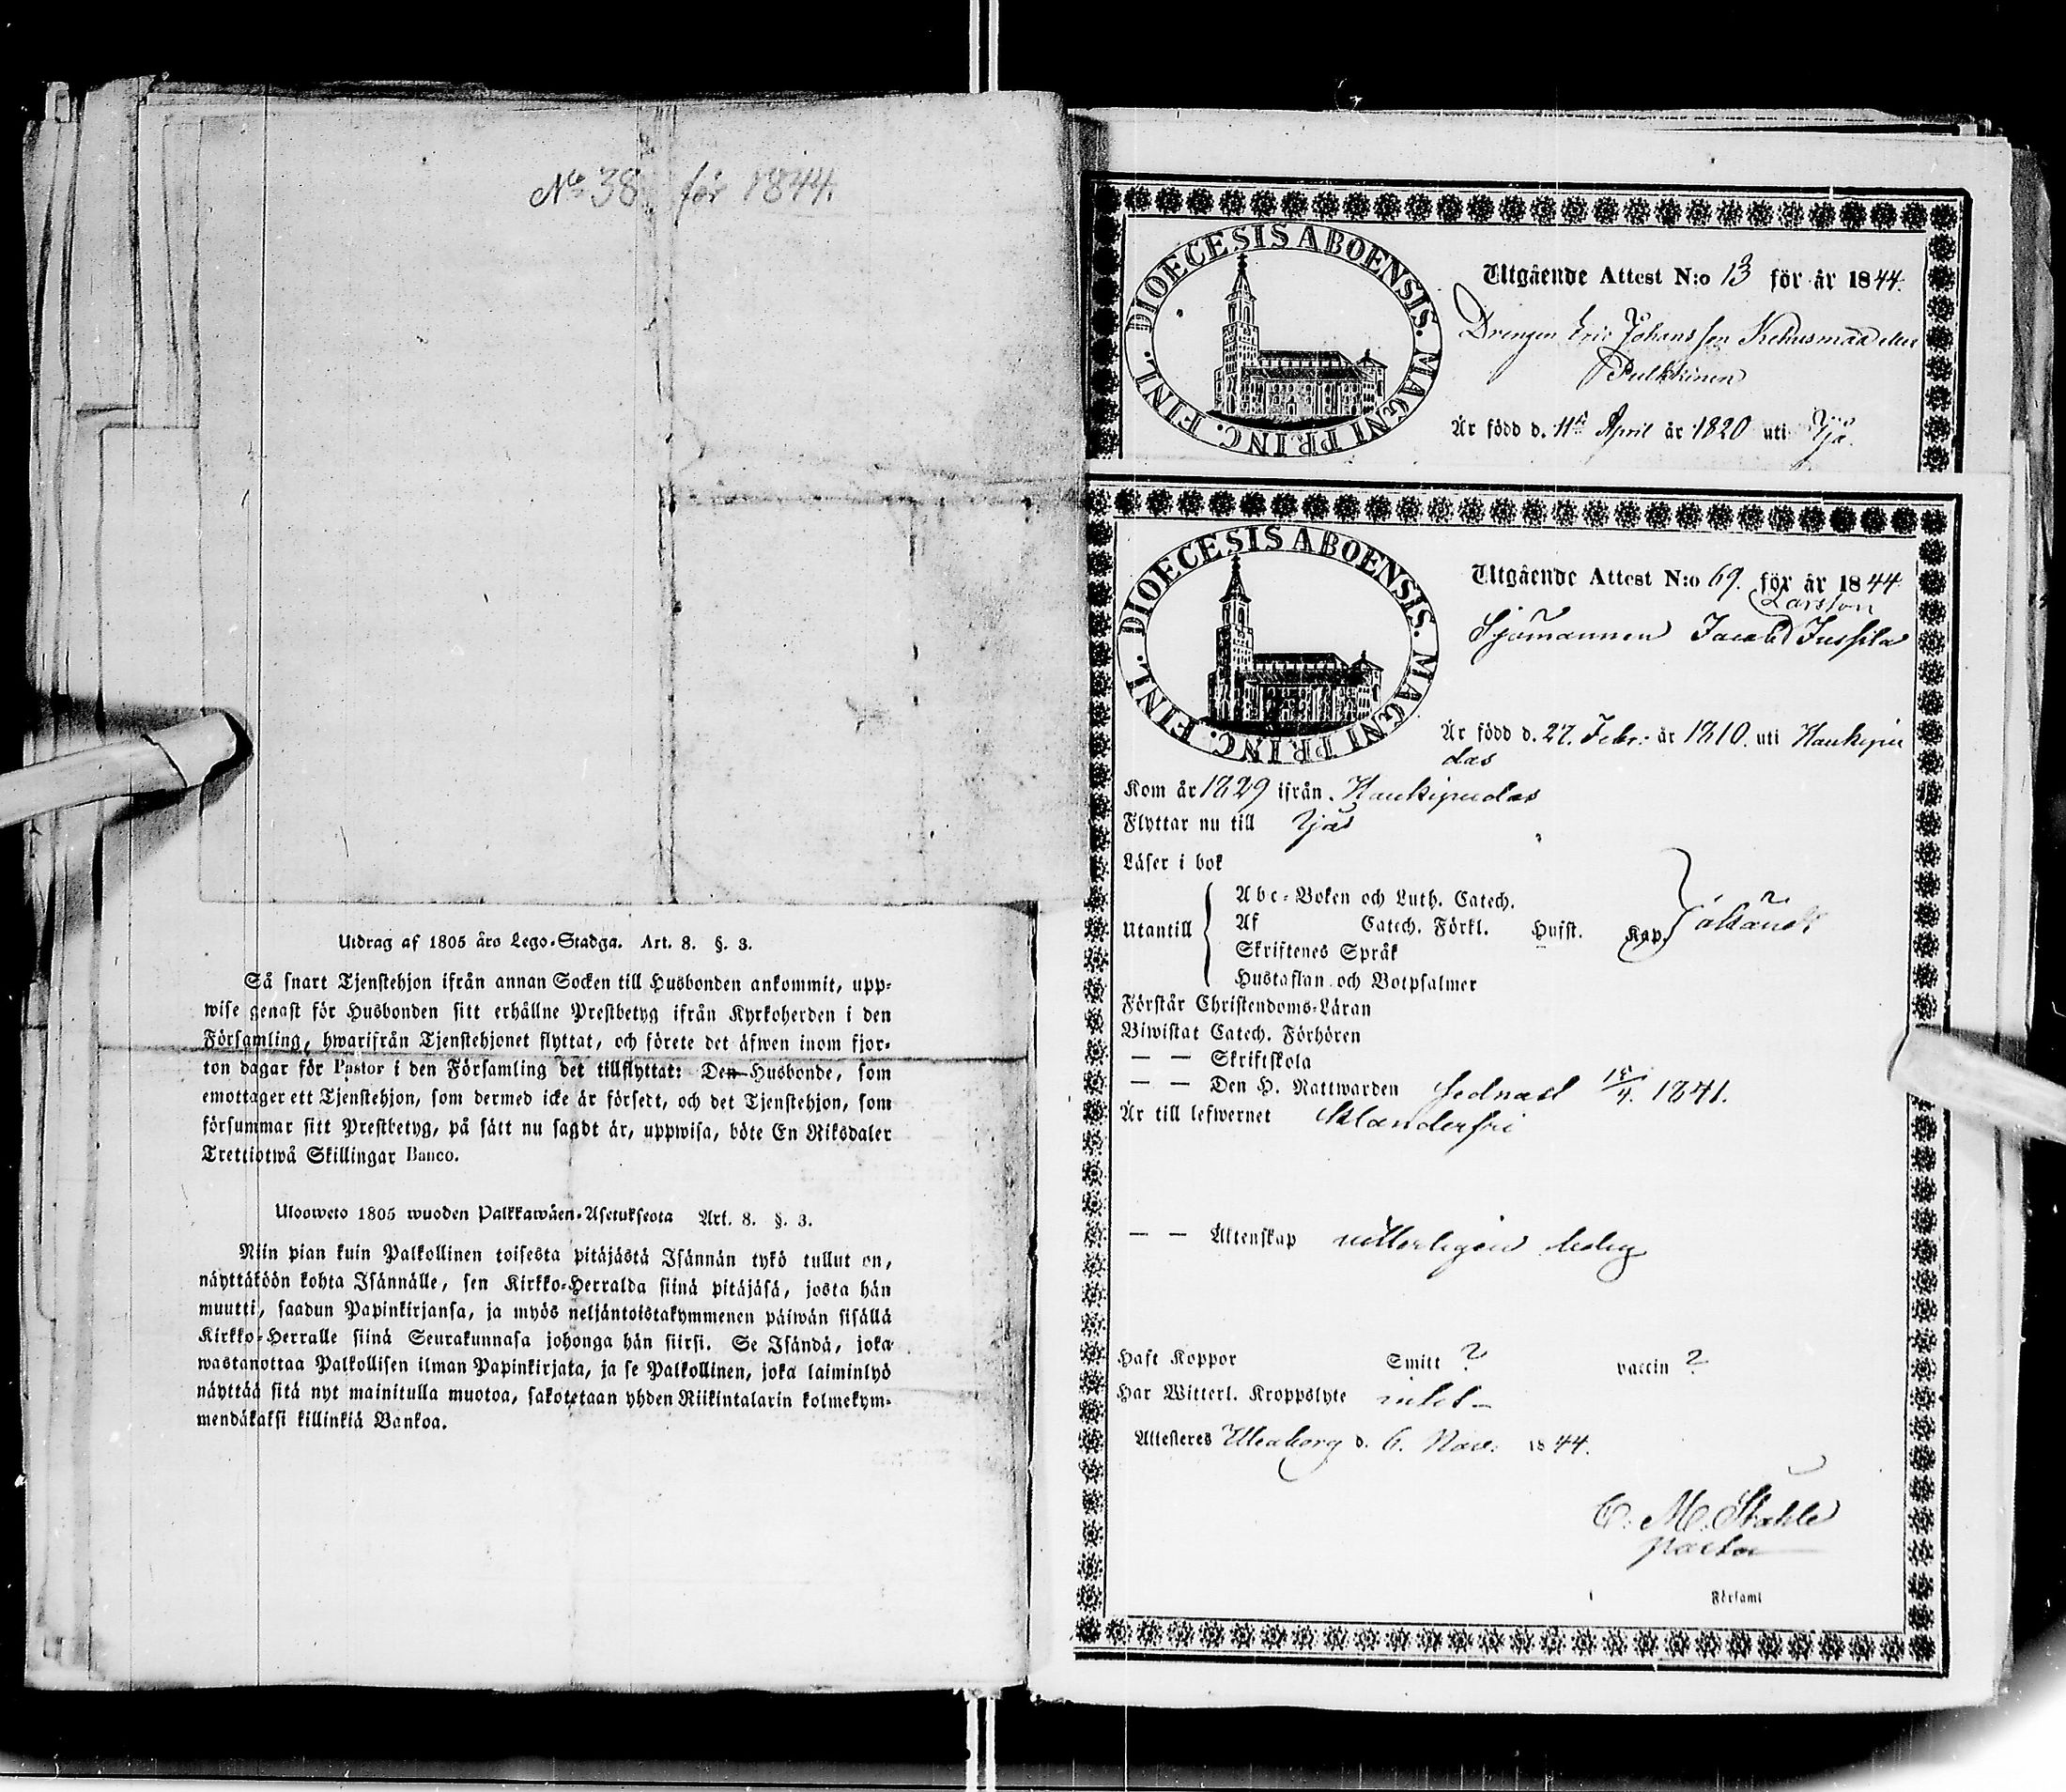 No 38 för 1844.
Utdrag af 1805 års Lego-Stadga. Art. 8. §. 3.
Så snart Tjenstehjon ifrån annan Socken till Husbonden ankommit, upp-
wise genast för Husbonden sitt erhållne Prestbetyg ifrån Kyrkoherden i den
Församling, hwarifrån Tjenstehjonet flyttat, och förete det äfwen inom fjor-
ton dagar för Pastor i den Församling det tillflyttat: Den Husbonde, som
emottager ett Tjenstehjon, som dermed icke är försedt, och det Tjenstehjon, som
försummar sitt Prestbetyg, på sätt nu sagdt är, uppwisa, böte En Riksdaler
Trettiotwå Skillingar Banco.
Ulosweto 1805 wuoden Palkkawäen-Asetuksesta Art. 8. §. 3.
Niin pian kuin Palkollinen toisesta pitäjästä Isännän tykö tullut on,
näyttäköön kohta Isännälle, sen Kirkko-Herralda siinä pitäjäsä, josta hän
muutti, saadun Papinkirjansa, ja myös neljäntoistakymmenen päiwän sisällä
Kirkko-Herralle siinä Seurakunnasa johonga hän siirsi. Se Isändä, joka
wastanottaa Palkollisen ilman Papinkirjata, ja se Palkollinen, joka laiminlyö
näyttää sitä nyt mainitulla muotoa, sakotetaan yhden Riikintalarin kolmekym-
mendäkaksi killinkiä Bankoa.
DIOECESIS ABOENSIS. MAGNI PRINC. FINL.
Utgående Attest N:o 13 för år 1844.
Drengen Eric Johansson Kehusmaa eller
Pulkkinen
Är född d. 11te April år 1820 uti Ijo.
DIOECESIS ABOENSIS. MAGNI PRINC. FINL.
Utgående Attest N:o 69. för år 1844
Larsson
Sjömannen Jacob Jussila
Är född d. 27. Febr: år 1810. uti Haukipu
das
Kom år 1829 ifrån Haukipudas
Flyttar nu till Ijo
Läser i bok
Utantill
Abc-Boken och Luth. Catech.
Af Catech. Förkl. Hufst. Kap.
Skriftenes Språk
Hustaflan och Botpsalmer
Förstår Christendoms-Läran
Biwistat Catech. Förhören
— — Skriftskola
— — Den H. Nattwarden sednast 18/4. 1841.
Är till lefwernet klanderfri
— — Äktenskap vetterligen ledig
Haft Koppor Smitt ? vaccin ?
Har Witterl. Kroppslyte intet -
Attesteres Uleaborg d. 6. Nov. 1844.
C. M. Ståhle
pastor
i Församl